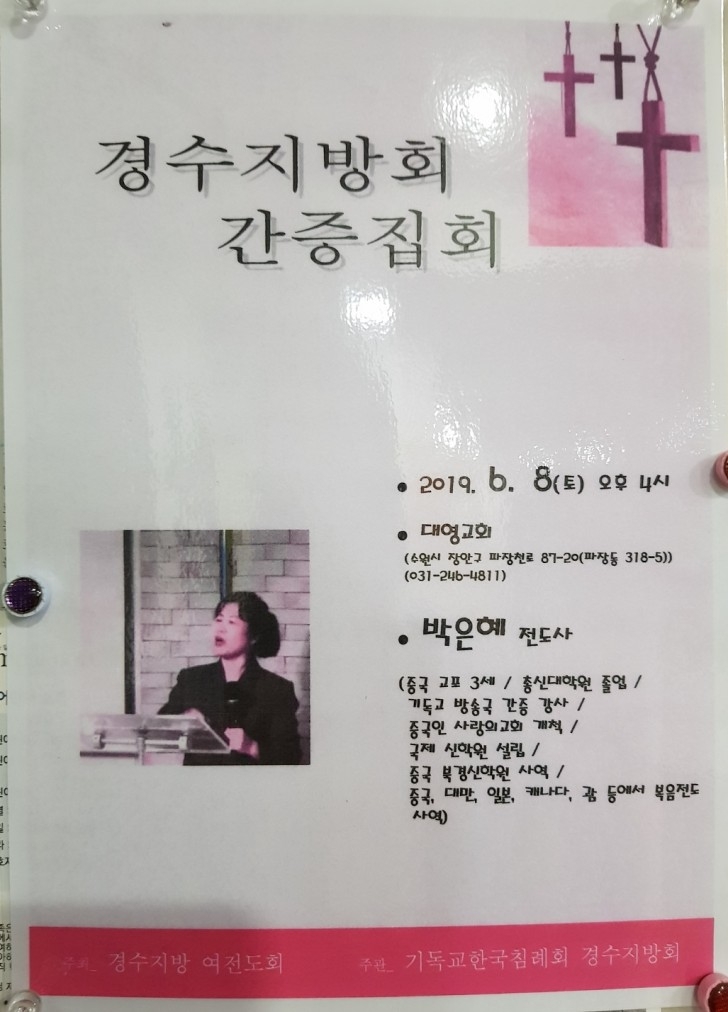 경수지방회
간증집회
• 2019. 6. 8(토) 오후 4시
• 대영교회
(수원시 장안구 파장천로 87-20(파장동 318-5))
(031-246-4811)
• 박은혜 전도사
(중국 교포 3세 / 총신대학원 졸업 /
기독교 방송국 간증 강사 /
중국인 사랑의교회 개척 /
국제 신학원 설립 /
중국 북경신학원 사역 /
중국, 대만, 일본, 캐나다, 괌 등에서 복음전도
사역)
경수지방 여전도회
주관_ 기독교한국침례회 경수지방회